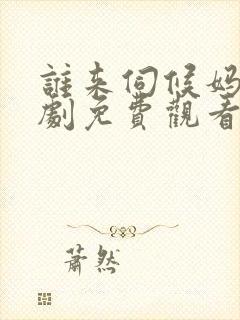 誰来伺候妈
劇免費觀看
蕭然